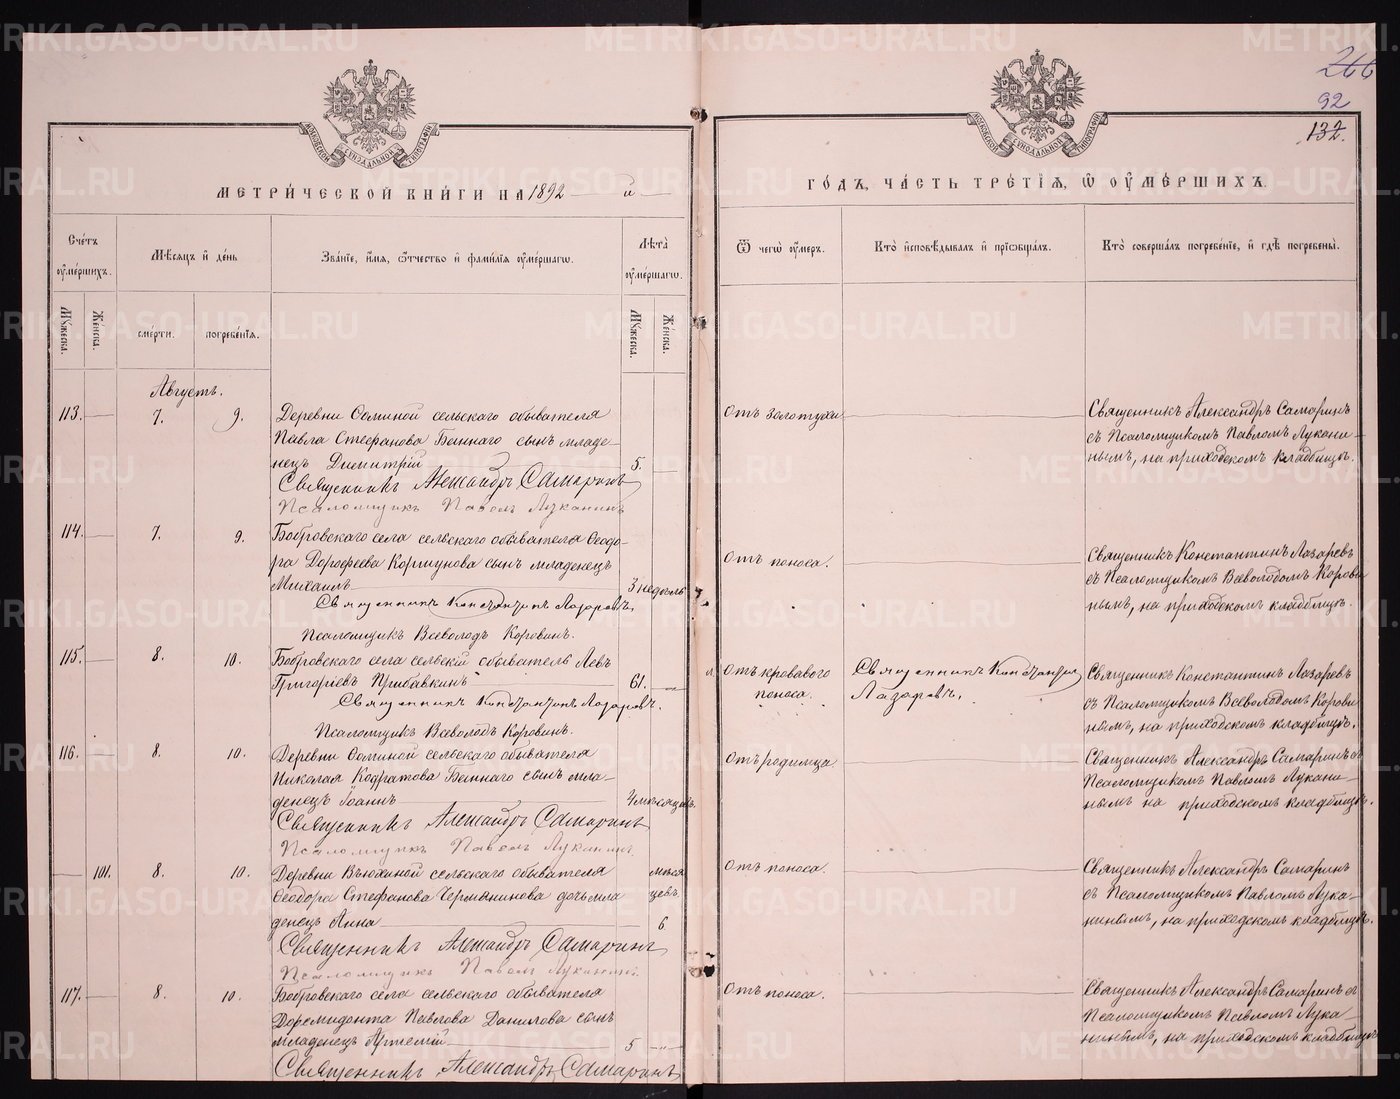 266
92
132.
МЕТРИ́ЧЕСКОЙ КНИ́ГИ НА 1892 й
ГО́ДЪ, ЧА́СТЬ ТРЕ́ТІѦ, Ѡ ОУ҆МЕ́РШИХЪ.
Сче́тъ оу҆ме́ршихъ.
Мѣ́сѧцъ и҆ де́нь
Зва́нїе, и҆́мѧ, ѻ҆́тчество и҆ фами́лїѧ оу҆ме́ршагѡ.
Лѣ́та оу҆ме́ршагѡ.
Ѿ чегѡ̀ оу҆́меръ.
Кто̀ и҆сповѣ́дывалъ и҆ прїѡбща́лъ.
Кто̀ соверша́лъ погребе́нїе, и҆ гдѣ̀ погребены̀.
Мꙋ́жеска.
Же́нска.
сме́рти.
погребе́нїѧ.
Мꙋ́жеска.
Же́нска.
Августъ.
113. 7. 9.
Деревни Фоминой сельскаго обывателя
Павла Стефанова Беннаго сынъ младе-
нецъ Димитрій 5.
Священникъ Александръ Самаринъ
Псаломщикъ Павелъ Луканинъ
Отъ золотухи
Священникъ Александръ Самаринъ
съ Псаломщикомъ Павломъ Лукани-
нымъ, на приходскомъ кладбищѣ.
114. 7. 9.
Бобровскаго села сельскаго обывателя Ѳеодо-
ра Дорофеева Коршунова сынъ младенецъ
Михаилъ 3 недѣль
Священникъ Константинъ Лазаревъ.
Псаломщикъ Всеволодъ Коровинъ.
Отъ поноса.
Священникъ Константинъ Лазаревъ
съ Псаломщикомъ Всеволодомъ Корови
нымъ, на приходскомъ кладбищѣ.
115. 8. 10.
Бобровскаго села сельскій обыватель Левъ
Григорьевъ Прибавкинъ 61.
Священникъ Константинъ Лазаревъ.
Псаломщикъ Всеволодъ Коровинъ.
Отъ кроваваго
поноса.
Священникъ Константинъ
Лазаревъ.
Священникъ Константинъ Лазаревъ
съ Псаломщикомъ Всеволодомъ Корови
нымъ, на приходскомъ кладбищѣ.
116. 8. 10.
Деревни Фоминой сельскаго обывателя
Николая Кодратова Беннаго сынъ мла-
денецъ Іоаннъ 4 мѣсяцевъ.
Священникъ Александръ Самаринъ
Псаломщикъ Павелъ Луканинъ.
Отъ родимца
Священникъ Александръ Самаринъ съ
Псаломщикомъ Павломъ Лукани-
нымъ на приходскомъ кладбищѣ.
101. 8. 10.
Деревни Вьюхиной сельскаго обывателя
Ѳеодора Стефанова Чермянинова дочь мла
денецъ Анна
мѣся
цевъ.
6
Священникъ Александръ Самаринъ
Псаломщикъ Павелъ Луканинъ.
Отъ поноса.
Священникъ Александръ Самаринъ
съ Псаломщикомъ Павломъ Лука-
нинымъ, на приходскомъ кладбищѣ.
117. 8. 10.
Бобровскаго села сельскаго обывателя
Доремидонта Павлова Данилова сынъ
младенецъ Артемій 5 -"-
Священникъ Александръ Самаринъ
Отъ поноса.
Священникъ Александръ Самаринъ съ
Псаломщикомъ Павломъ Лука-
нинымъ, на приходскомъ кладбищѣ